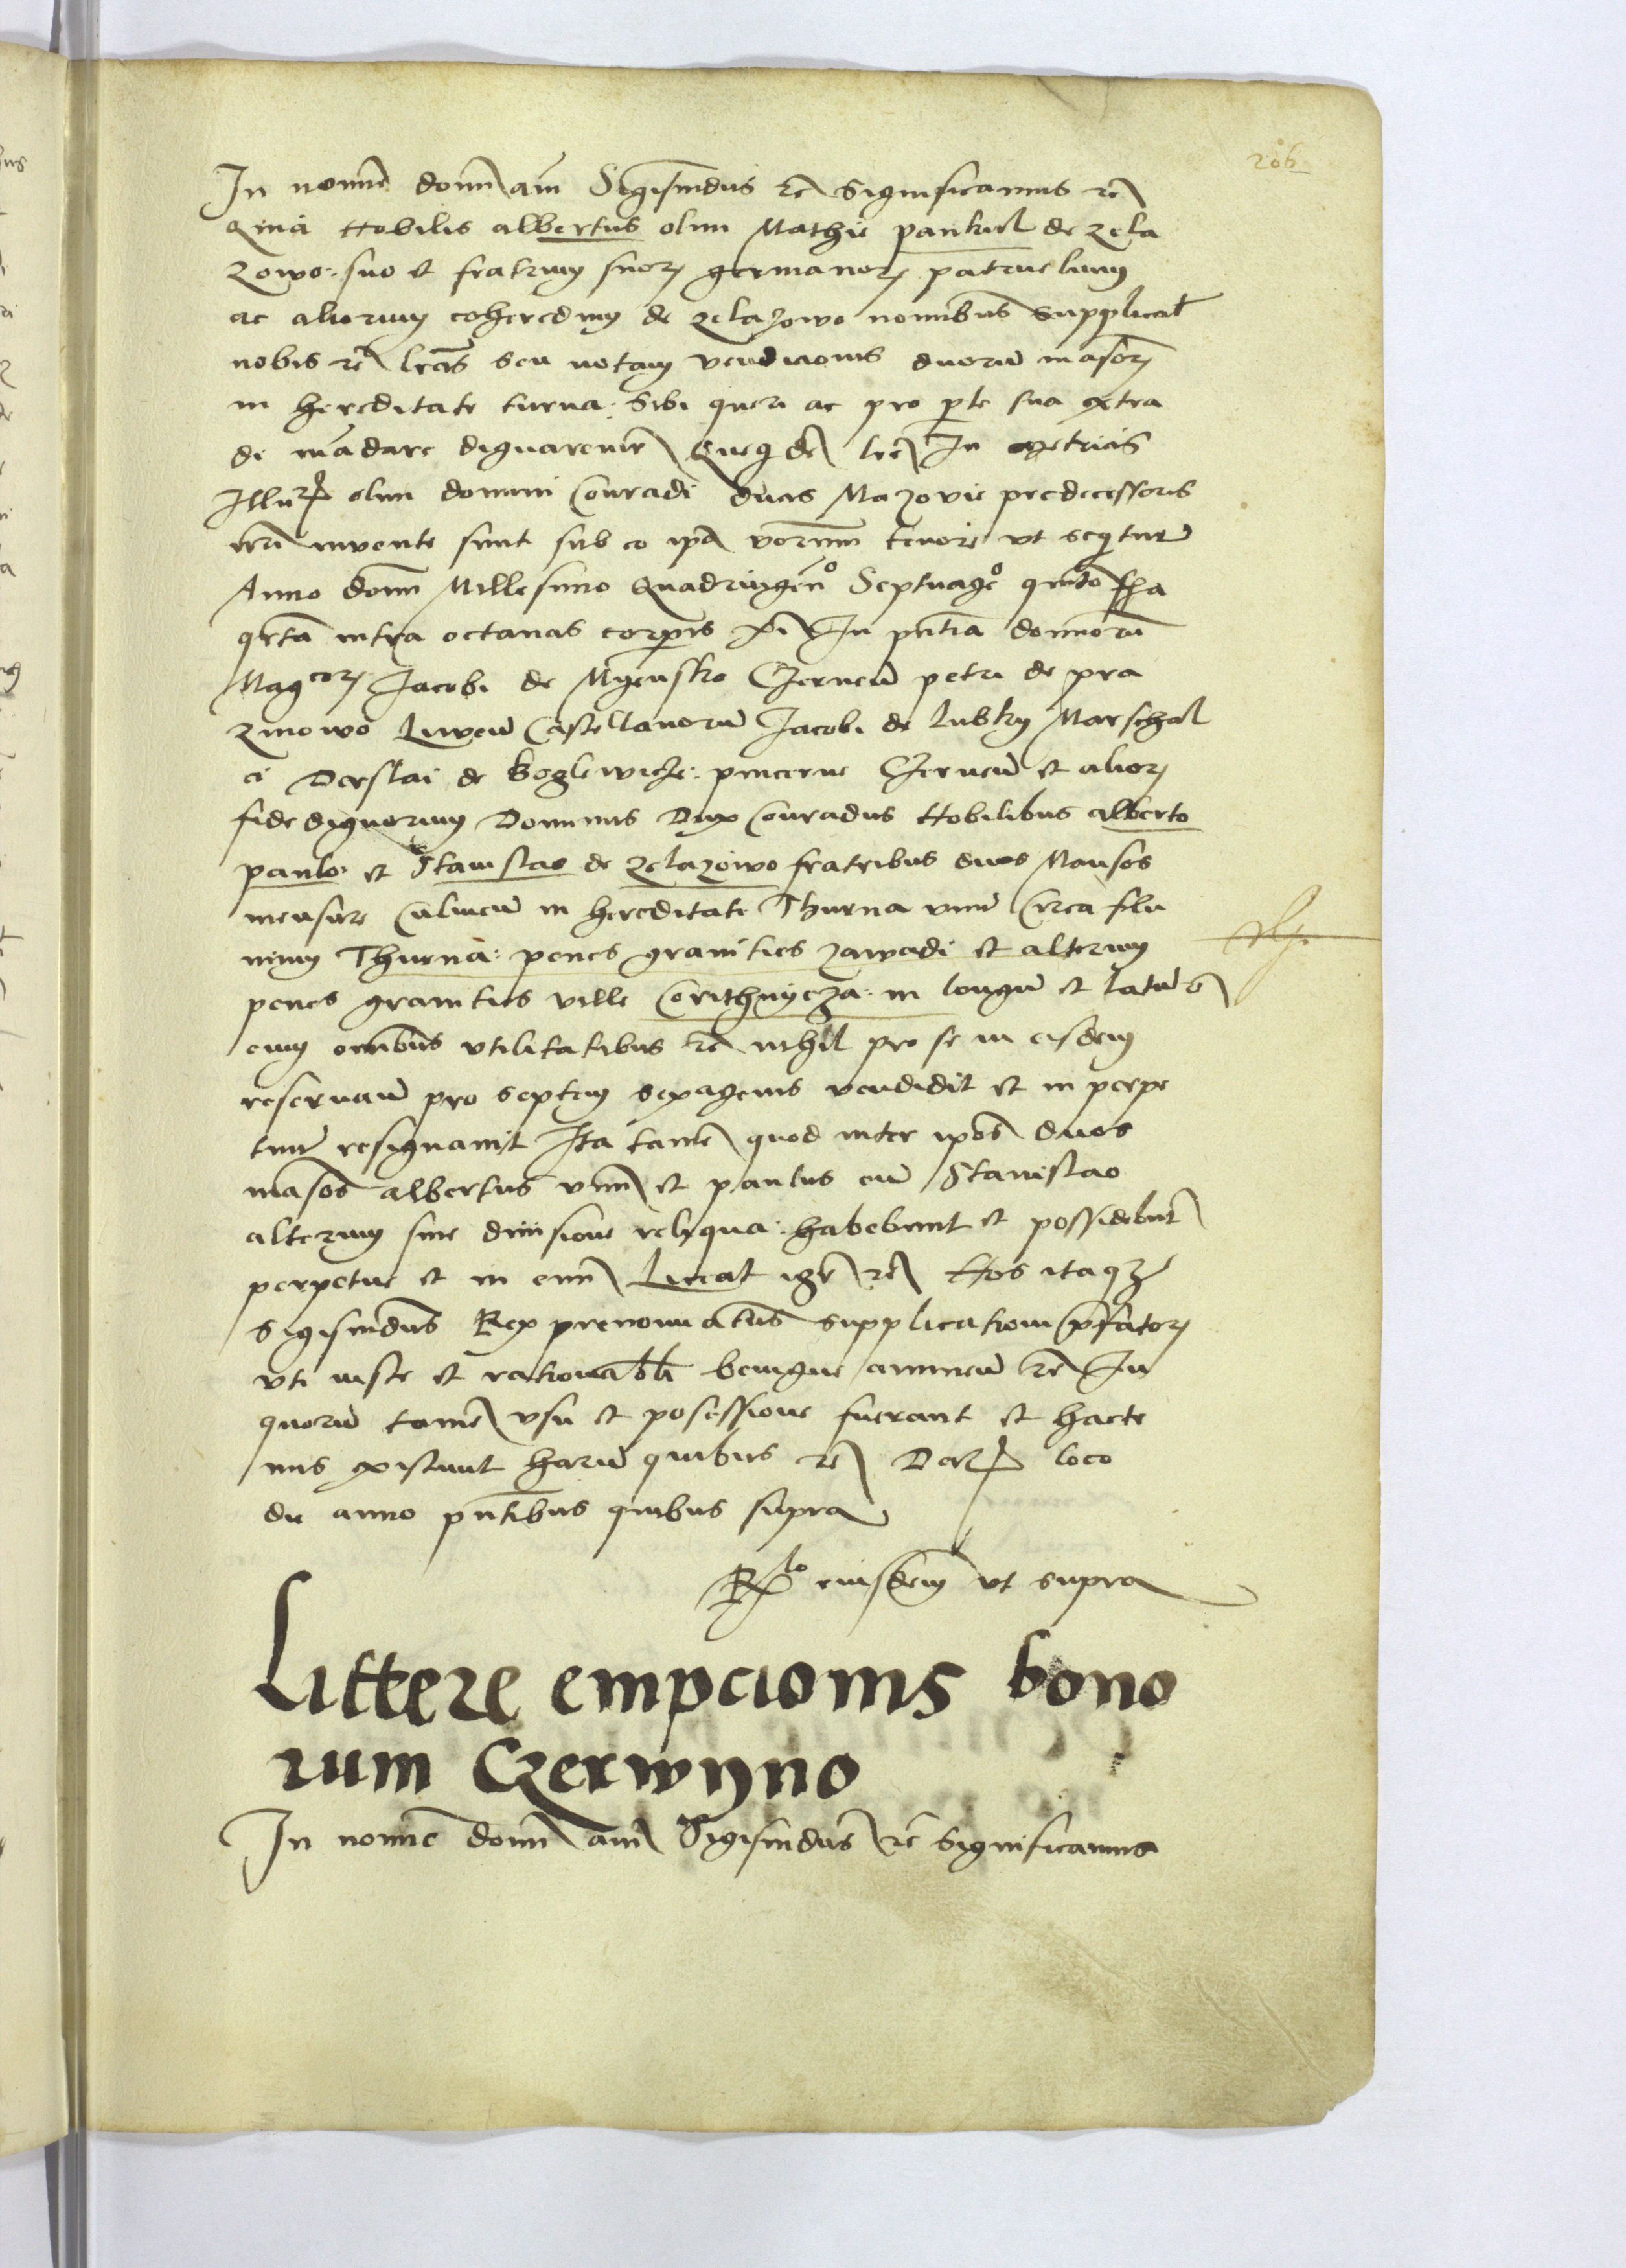 206
In nomine domini am Sigismdus rc Significamus rc
Quia Nobilis albertus olim Mathie pankul de zela
zowo suo et fratrum suorz germanorz patruelium
ac aliorum coheredum de zelazowo nominibus supplicat
nobis rc lras seu notam vendicionis duorum masorz
in hereditate turna Sibi queri ac pro pte sua extra
de madare dignaremr Quequide lre In metricis
Illurz olim domini Conradi ducis Mazovie predecessoris
nri invente sunt sub eo ipo verorum tenore ut sequitur
Anno domi Millesimo Quadringeno Septuageo quinto fha
qrta infra octauas corporis xpi In pntia dominorum
Magcorz Jacobi de Myensko Czerneum petri de pra
zmowo Liveum Castellanorum Jacobi de Lubky Marschal
ci Derslai de Boglewicze pincerne Czerneum et aliorz
fidedignorum Dominus Dux Conradus Nobilibus alberto
paulo et Stanislao de zelazowo fratribus duos Mansos
mensure Culmeum in hereditate Thurna unum Circa flu
uium Thurna penes granities zawadi et alterum
penes granities ville Corithnycza in longum et latum
cum omnibus vtilitatibus rc nihil pro se in eisdem
reseruaum pro septem sexagenis vendidit et in perpe
tuum resignauit Ita tamen quod inter ipos duos
masos albertus unum et paulus cum Stanislao
alterum sine diuisione reliqua habebunt et possidebunt
perpetue et in eum Liceat igr rc Nos itaqz
Sigismdus Rex prenominatus supplicationi pfatorz
vti iuste et rationabli benigne annueum rc In
quorum tamen vsu et posessione fuerant et hacte
nus existunt harum quibus rc Datz loco
die anno pntibus quibus supra
Rlo eiusdem ut supra
Littere empcionis bono
rum Czerwyno
In nomine domi am Sigismdus rc Significamus